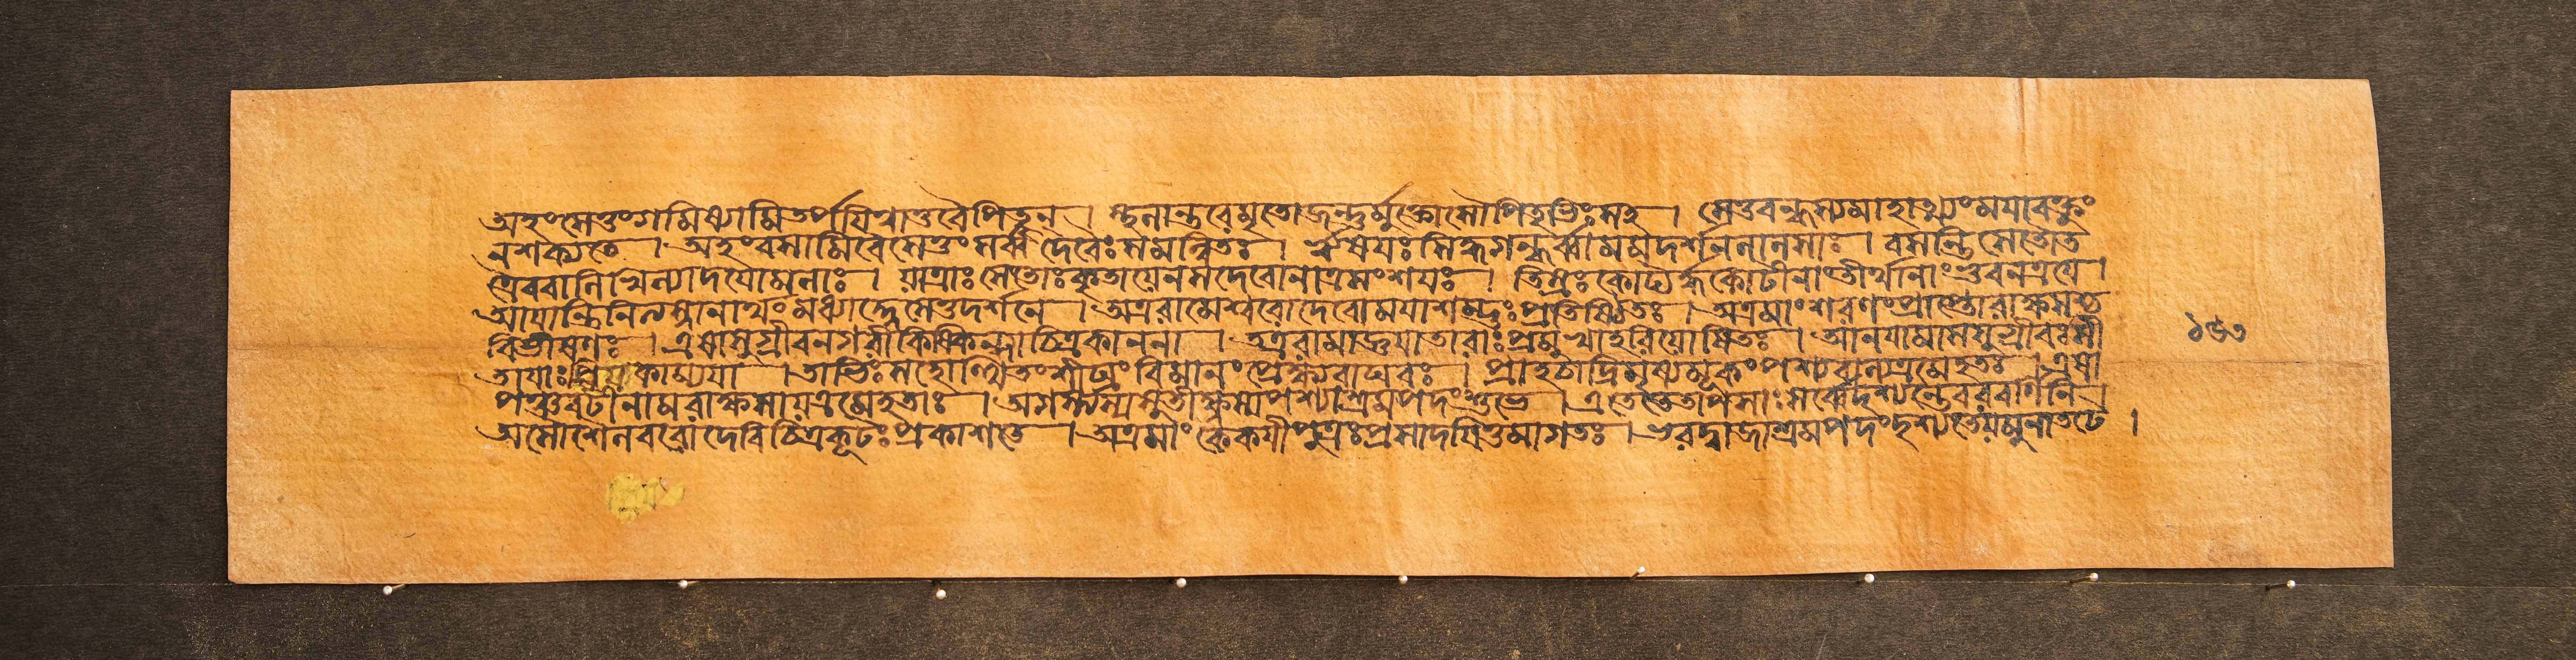 অহং সেতুং গমিষ্যামি তর্পয়িত্বা তু বৈ পিতৄন্ । মৃতো জন্তুর্মুক্তোসৌ পিতৃভিঃ সহ । সেতুবন্ধস্য মাহাত্ম্যং ময়া বক্তুং
ন শক্যতে । অহং বসামি বৈ সেতুং সর্ব্বদেবৈঃ সমন্বিতঃ । ঋষয়ঃ সিদ্ধগন্ধর্ব্বা মম দর্শনলালসাঃ । বসন্তি সেতৌ ত
ত্রৈব বালিখিল্যাদয়োমলাঃ । যাত্রাঃ সেতোঃ কৃতা যেন স দেবো নাত্র সংশয়ঃ । তিস্রঃ কোট্যর্দ্ধকোটীনাং তীর্থানাং ভুবনত্রয়ে ।
আয়ান্তি মধ্যাহ্নে সেতুদর্শনে । অত্র রামেশ্বরো দেবো ময়া শম্ভুঃ প্রতিষ্ঠিতঃ । অত্র মাং শরণং প্রাপ্তো রাক্ষসশ্চ
বিভীষণঃ । এষা সুগ্রীবনগরী কিষ্কিন্ধ্যা চিত্রকাননা । তত্র রামাজ্ঞয়া তারাঃ প্রমুখা হরিযোষিতঃ । আনয়ামাস সুগ্রীবঃ সী
তায়াঃ প্রিয়কাম্যয়া । তাভিঃ সহোত্থিতং শীঘ্রং বিমানং প্রেক্ষ্য রাঘবঃ । প্রাহ চাদ্রিমৃষ্যমূকং পশ্য বাল্যত্র মে হতঃ । এষা
পঞ্চবটী নাম রাক্ষসা যত্র মে হতাঃ । অগস্ত্যস্য সুতীক্ষ্ণস্য পশ্যাশ্রমপদং শুভে । এতে তে তাপসাঃ সর্ব্বে দৃশ্যন্তে বরবর্ণিনি ।
অসৌ শৈলবরো দেবি চিত্রকূটঃ প্রকাশতে । অত্র মাং কৈকয়ীপুত্রঃ প্রসাদয়িতুমাগতঃ । ভরদ্বাজাশ্রমপদং দৃশ্যতে যমুনাতটে ।